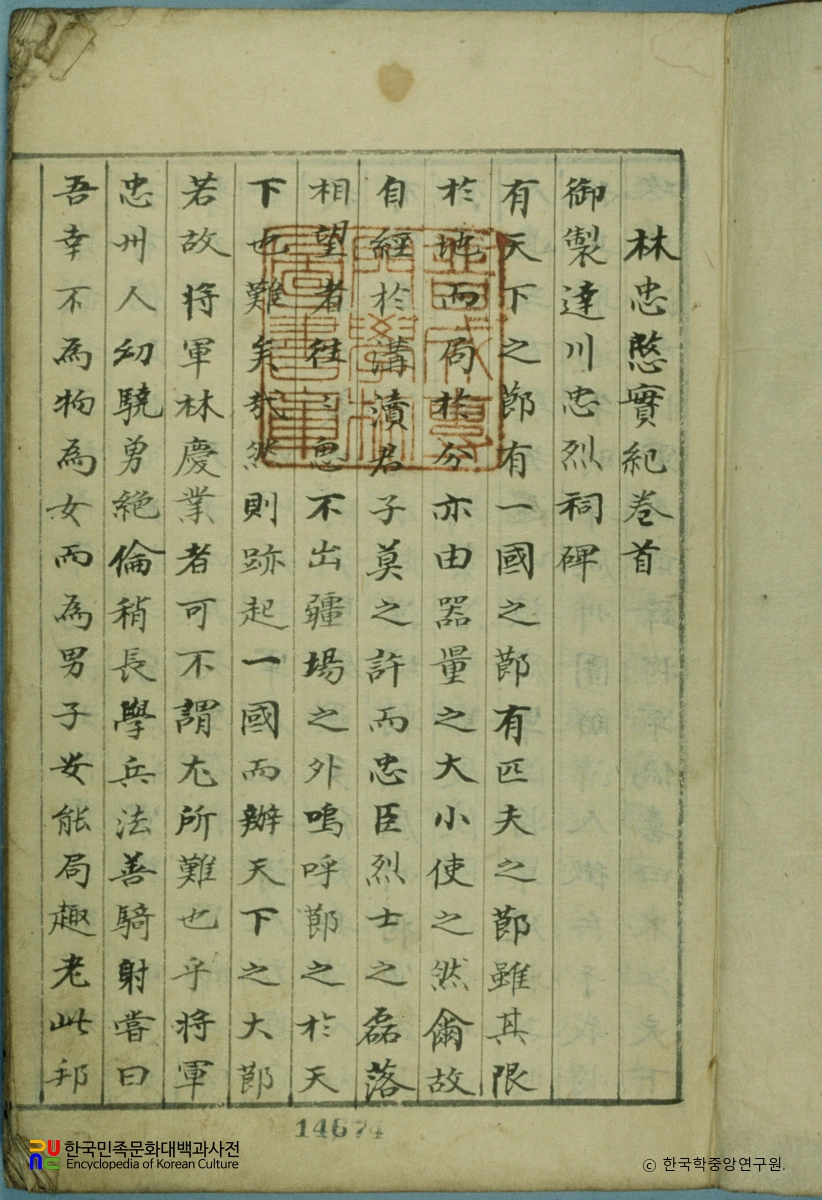 林忠愍實紀卷首
御製達川忠烈祠碑
有天下之節有一國之節有匹夫之節雖其限
於地而局於分亦由器量之大小使之然爾故
自經於溝瀆君子莫之許而忠臣烈士之磊落
相望者往〻忠不出疆場之外嗚呼節之於天
下也難矣哉然則跡起一國而辦天下之大節
若故將軍林慶業者可不謂尤所難也乎將軍
忠州人幼驍勇絶倫稍長學兵法善騎射嘗曰
吾幸不為物為女而為男子安能局趣老此邦
14674
한국민족문화대백과사전
Encyclopedia of Korean Culture
© 한국학중앙연구원.